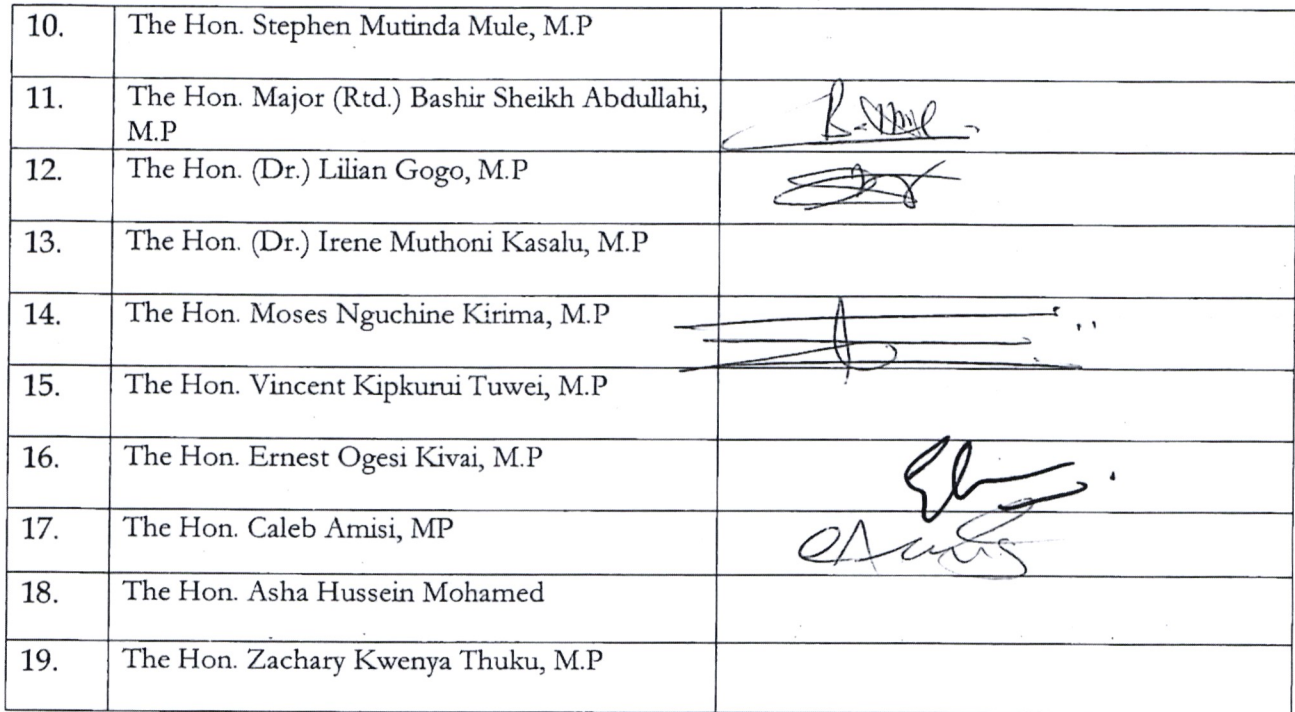 10. The Hon. Stephen Mutinda Mule, M.P
11. The Hon. Major (Rtd.) Bashir Sheikh Abdullahi,
M.P
12. The Hon. (Dr.) Lilian Gogo, M.P
13. The Hon. (Dr.) Irene Muthoni Kasalu, M.P
14. The Hon. Moses Nguchine Kirima, M.P
15. The Hon. Vincent Kipkurui Tuwei, M.P
16. The Hon. Ernest Ogesi Kivai, M.P
17. The Hon. Caleb Amisi, MP
18. The Hon. Asha Hussein Mohamed
19. The Hon. Zachary Kwenya Thuku, M.P